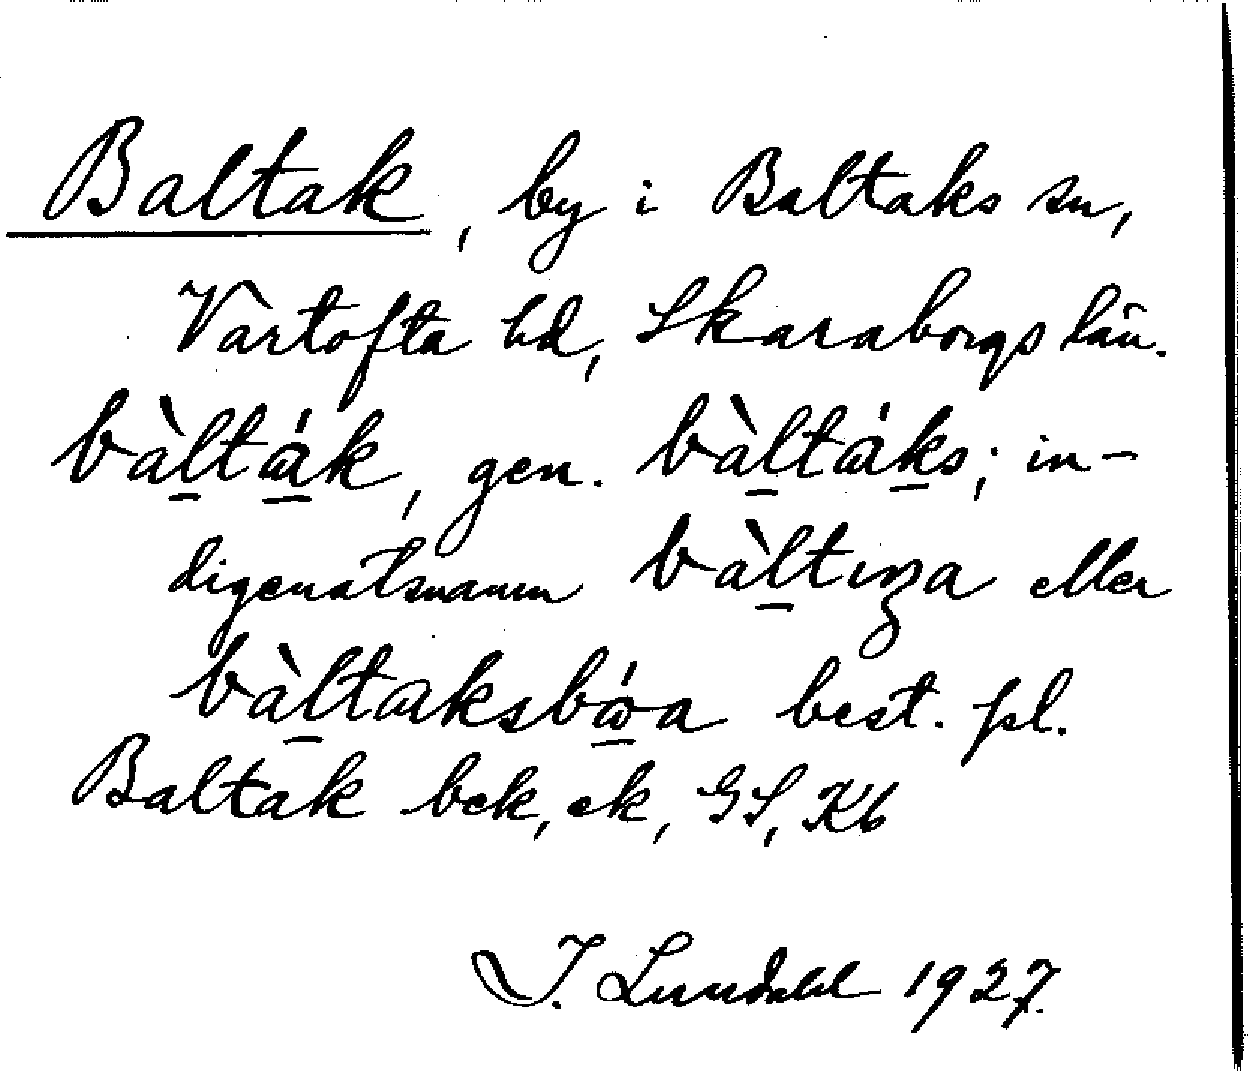 Baltak, by i Baltaks sn,
Vartofta hd, Skaraborgs län.
bàlták, gen. bàltáks; in-
digenatsnamn bàltıŋa eller
bàltaksbóa best. pl.
Baltak bek, ek, GS, Kb
I. Lundahl 1927.